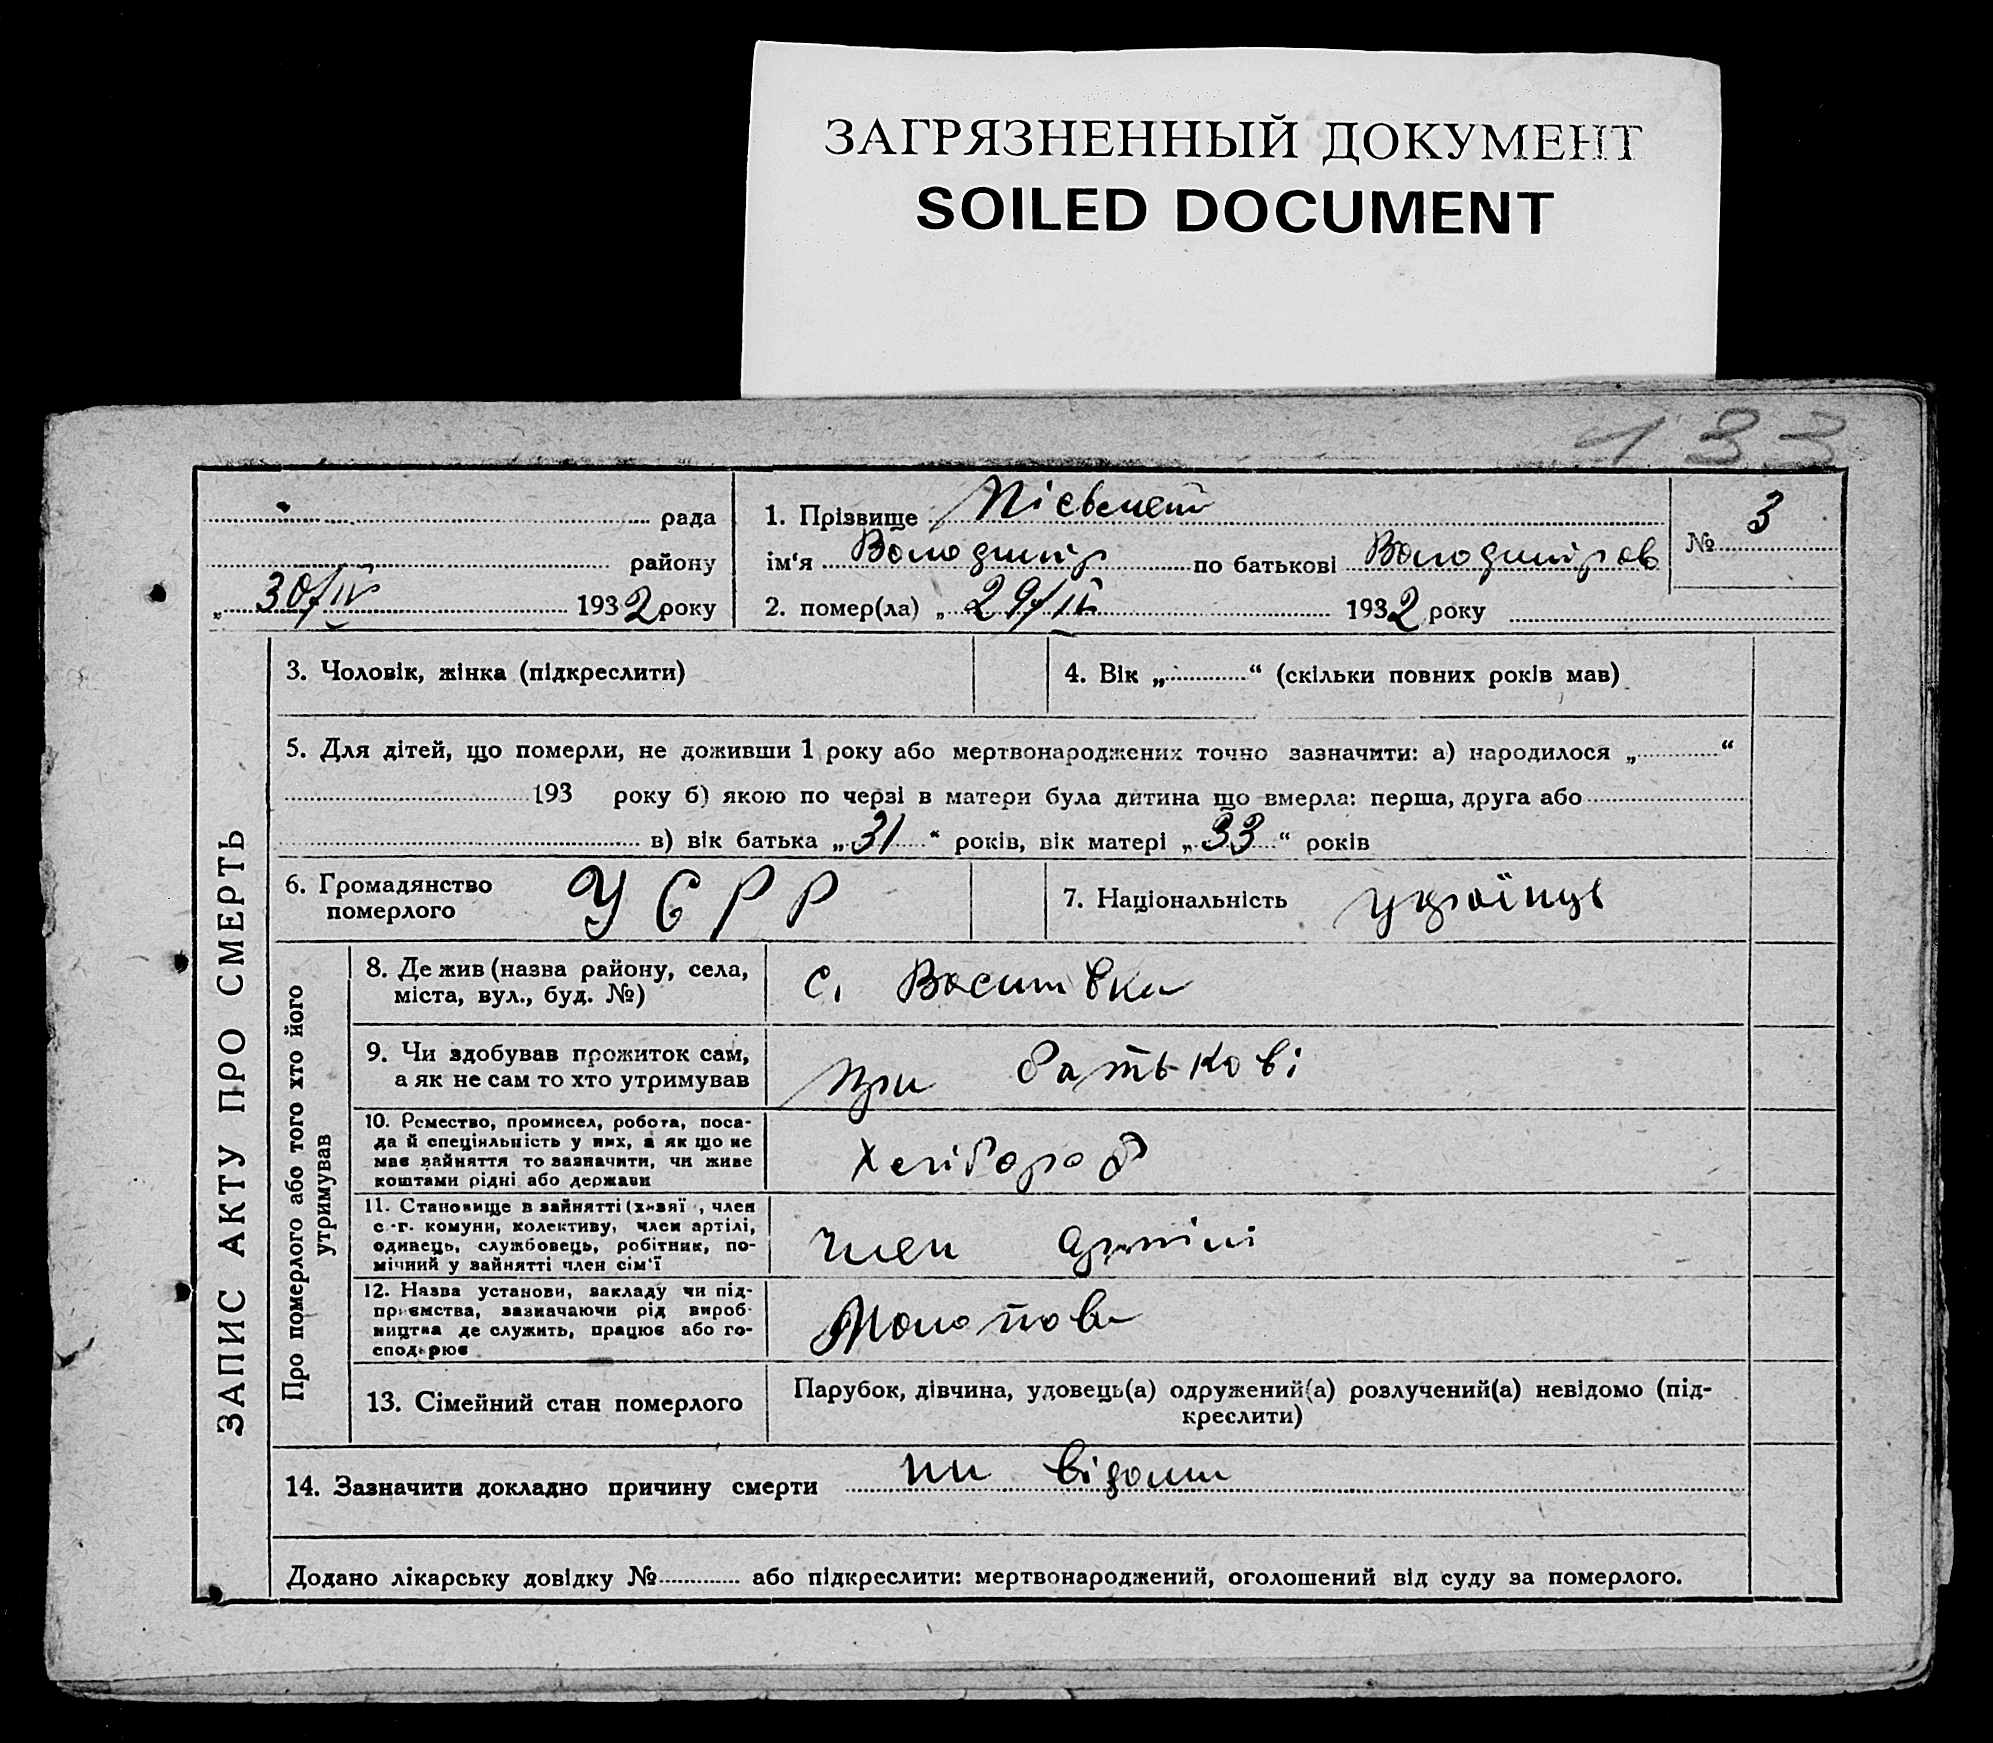 ЗАГРЯЗНЕННЫЙ ДОКУМЕНТ
SOILED DOCUMENT
133
рада
району
„ 30/IV 1932 року
1. Прізвище
ім‘я Володимір по батькові Володиміров
2. помер(ла) „ 29/IV 1932 року
№ 3
ЗАПИС АКТУ ПРО СМЕРТЬ
3. Чоловік, жінка (підкреслити)
4. Вік „ “ (скільки повних років мав)
5. Для дітей, що померли, не доживши 1 року або мертвонароджених точно зазначити: а) народилося „ “
193 року б) якою по черзі в матери була дитина що вмерла: перша, друга або
в) вік батька „ 31 “ років, вік матері „ 33 “ років
6. Громадянство
померлого
УСРР
7. Національність українць
Про померлого або того хто його
утримував
8. Де жив (назва району, села,
міста, вул., буд. №)
с. Василівка
9. Чи здобував прожиток сам,
а як не сам то хто утримував
при батькові
10. Ремество, промисел, робота, поса-
да й спеціяльність у них, а як що не
має зайняття то зазначити, чи живе
коштами рідні або держави
Хлібороб
11. Становище в зайнятті (хазяї , член
с.-г. комуни, колективу, член артілі,
одинець, службовець, робітник, по-
мічний у зайнятті член сім‘ї
член артілі
12. Назва установи, закладу чи під-
приємства, зазначаючи рід вироб-
ництва де служить, працює або го-
сподарює
Молотова
13. Сімейний стан померлого
Парубок, дівчина, удовець(а) одружений(а) розлучений(а) невідомо (під-
креслити)
14. Зазначити докладно причину смерти ни відоми
Додано лікарську довідку № або підкреслити: мертвонароджений, оголошений від суду за померлого.